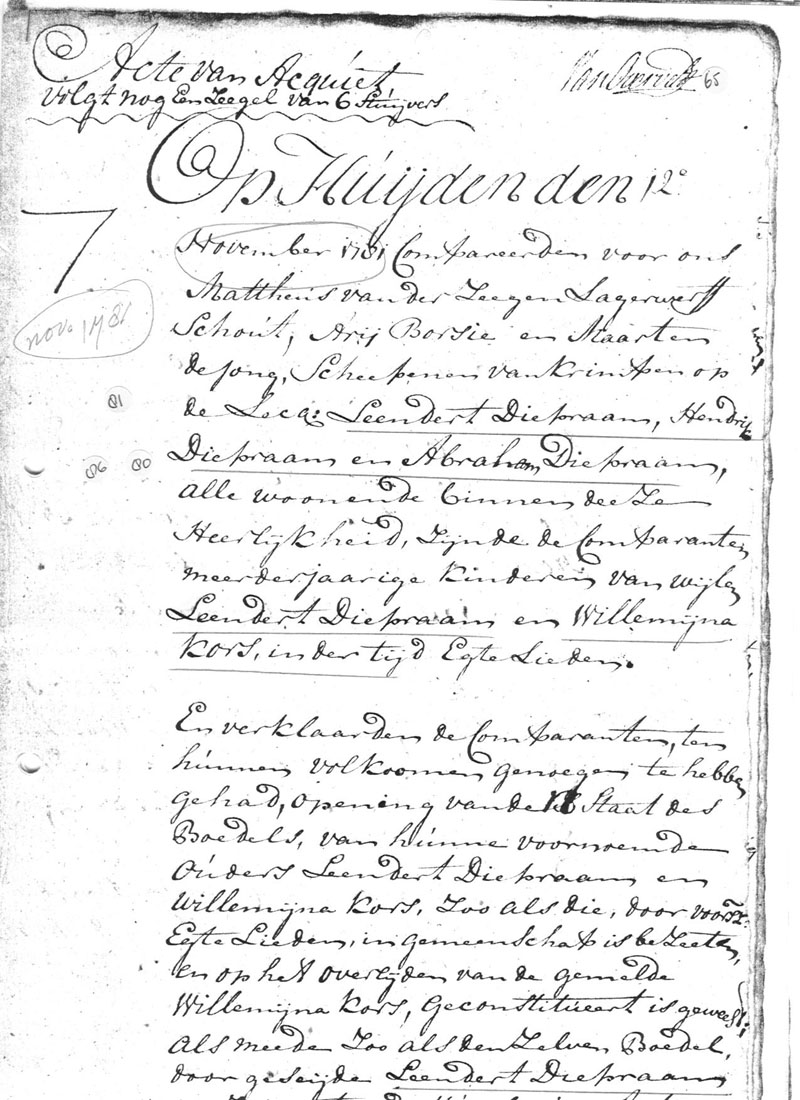 Acte van Acquiet
volgt nog Een Zeegel van 6 Stúijvers
65
Op Húijden den 12e
7
November 1781 Compareerden voor ons
Mattheus van der Zeegen Lagerwerff
nov. 1781
Schout, Arij Borsie en Maarten
de Jong, Scheepenen van Krimpen op
81
de Lecq: Leendert Diepraam, Hendrik
86 80
Diepraam en Abraham Diepraam,
alle woonende binnen deeze
Heerlijkheid, Zijnde de Comparanten
meerderjaarige Kinderen van wijlen
Leendert Diepraam en Willemijna
Kors, in der tijd Egte Lieden.
En verklaarden de Comparanten, ten
húnnen volkoomen genoegen te hebben
gehad, opening van de Staat des
Boedels, van húnne voornoemde
Oúders Leendert Diepraam en
Willemijna Kors, Zoo als die, door voorsz:
Egte Lieden, in gemeenschap is bezeeten,
en op het overlijden van de gemelde
Willemijna Kors, Geconstitúeert is geweest;
Als meede Zoo als den Zelven Boedel,
door geseijde Leendert Diepraam